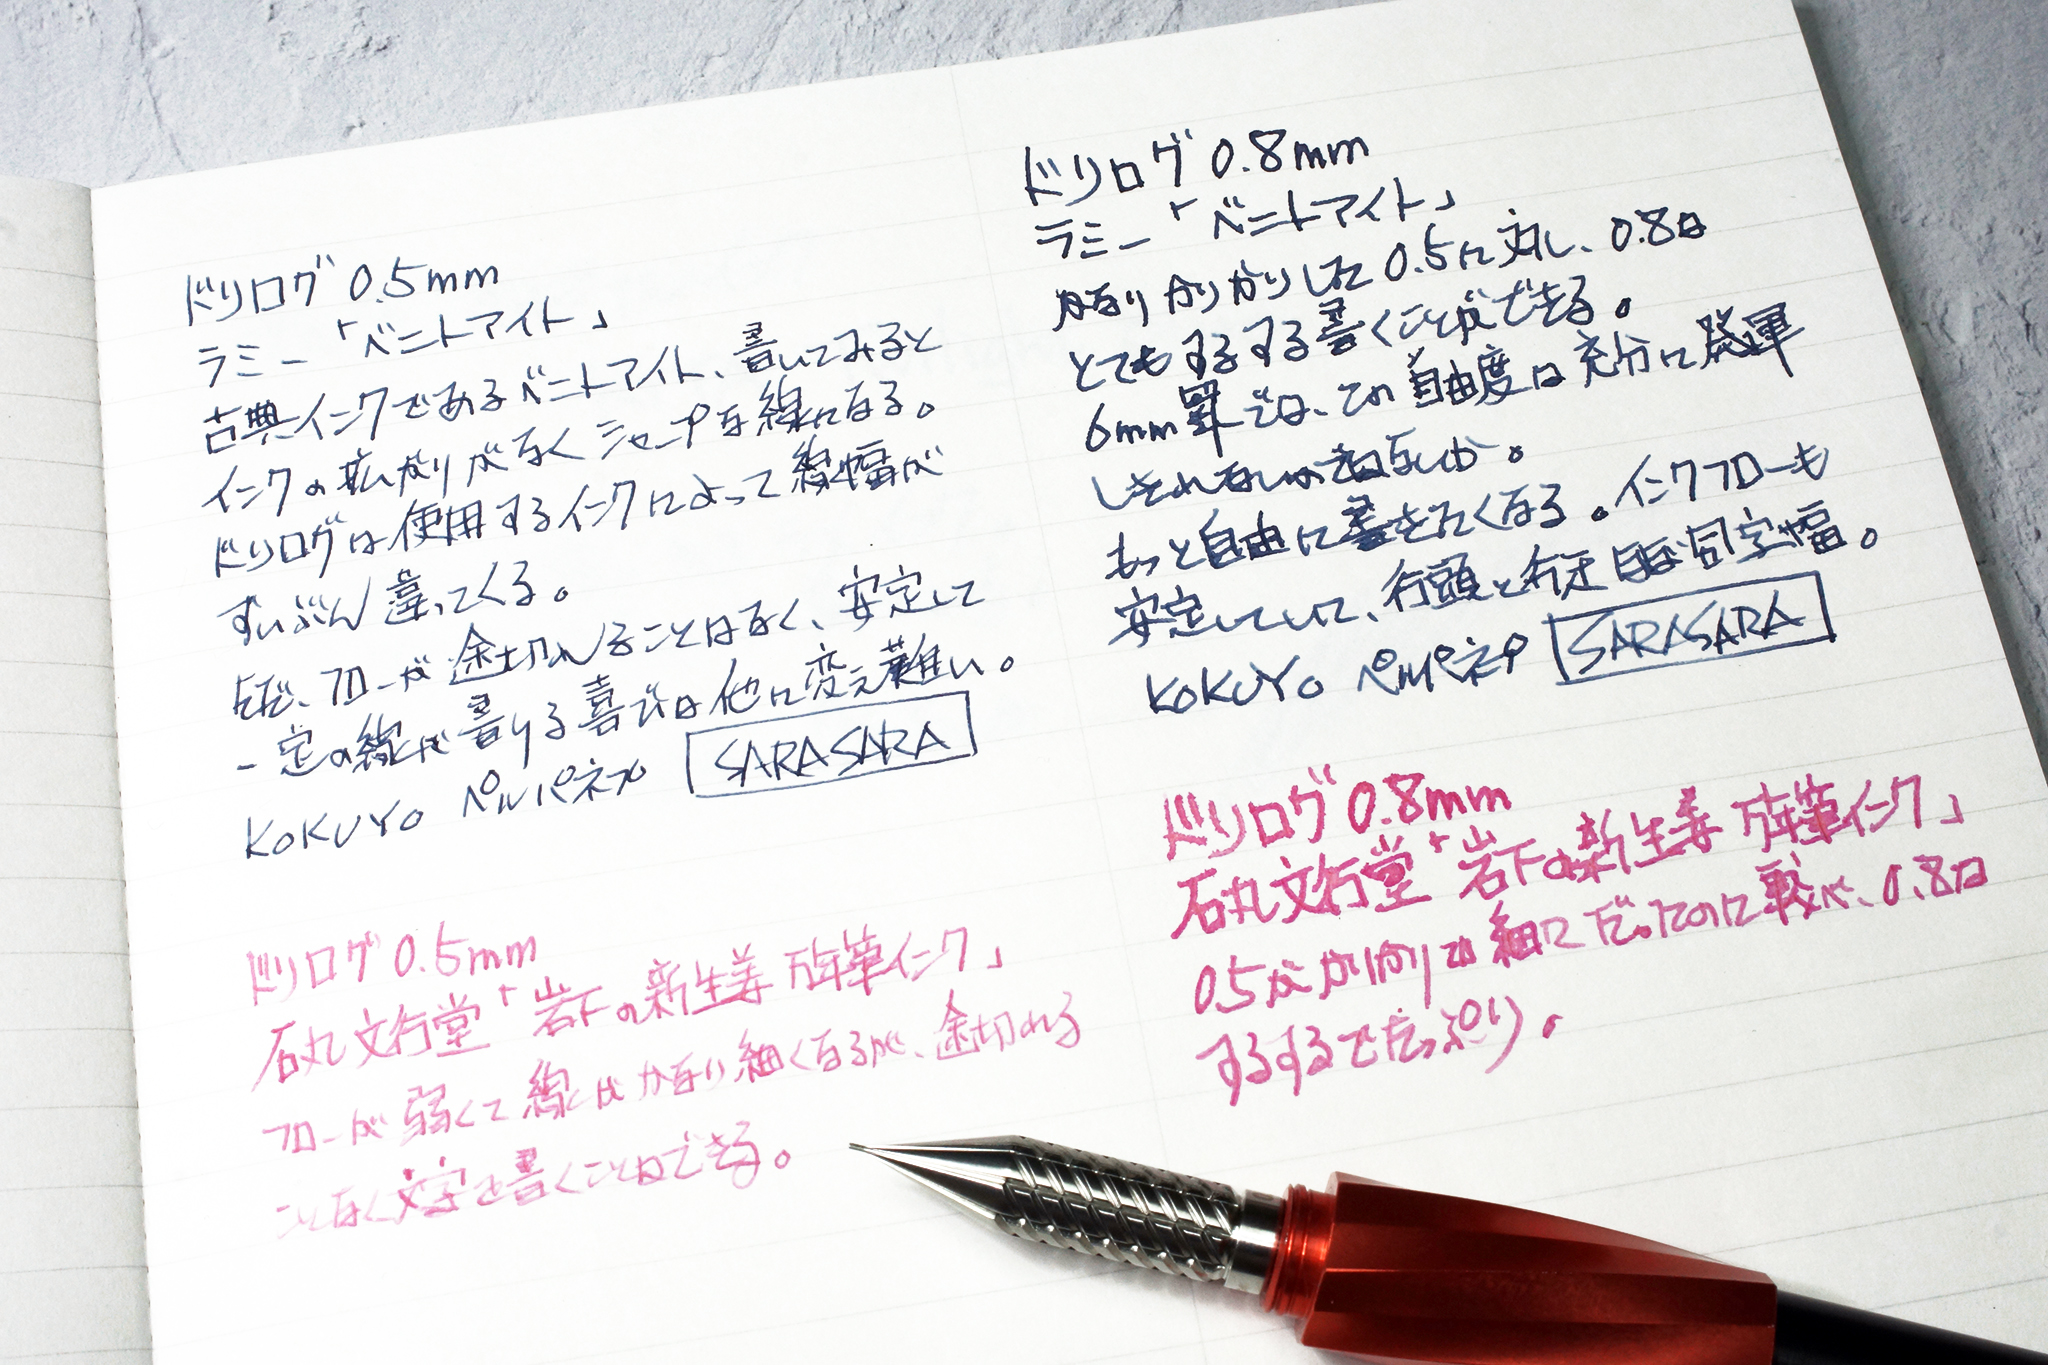 ドリログ 0.5mm
ラミー「ベニトアイト」
古典インクであるベニトアイト、書いてみると
インクの拡がりがなくシャープな線になる。
ドリログは使用するインクによって線幅が
ずいぶん違ってくる。
ただ、フローが途切れることはなく、安定して
一定の線が書ける喜びは他に変え難い。
KOKUYO ペルパネプ SARASARA
ドリログ 0.5mm
石丸文行堂「岩下の新生姜 万年筆インク」
フローが弱くて線はかなり細くなるが、途切れる
ことなく文字を書くことはできる。
ドリログ 0.8mm
ラミー「ベニトアイト」
かなりかりかりした0.5に対し、0.8は
とてもするする書くことができる。
6mm罫では、この自由度は充分に発揮
しきれないかもしれないが。
もっと自由に書きたくなる。インクフローも
安定していて、行頭と行末ほぼ同字幅。
KOKUYO ペルパネプ SARASARA
ドリログ 0.8mm
石丸文行堂「岩下の新生姜 万年筆インク」
0.5がかりかりで細くだったのに較べ、0.8は
するするでたっぷり。